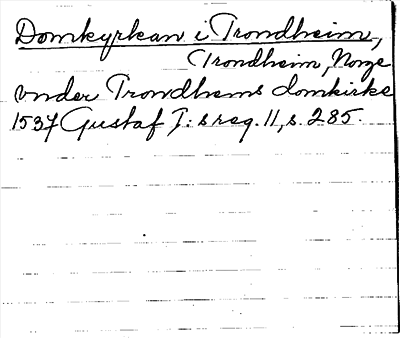 Domkyrkan i Trondheim,
Trondheim, Norge
under Trondhems domkirke
1537 Gustaf I: s reg. 11, s. 285.